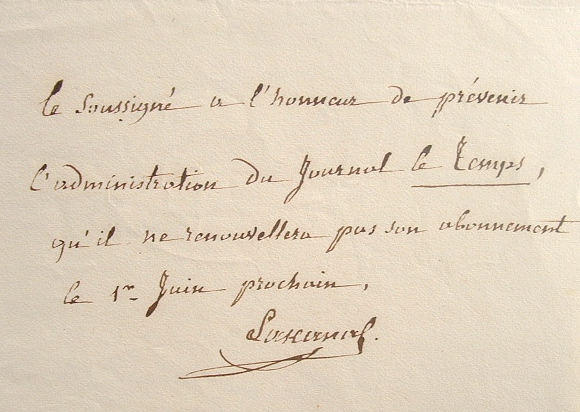 le soussigné a l'honneur de prévenir
l'administration du Journal le Temps,
qu'il ne renouvellera pas son abonnement
le 1er Juin prochain,
Lakanal.